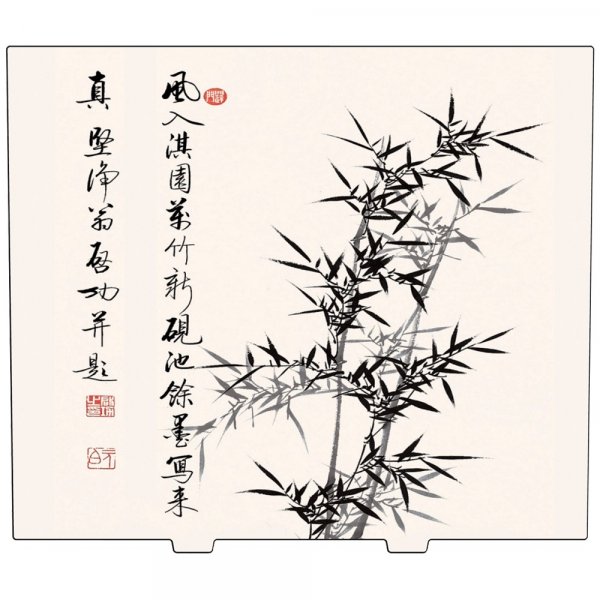 風入淇園萬竹新硯池餘墨寫来
真 堅淨翁啓功并題